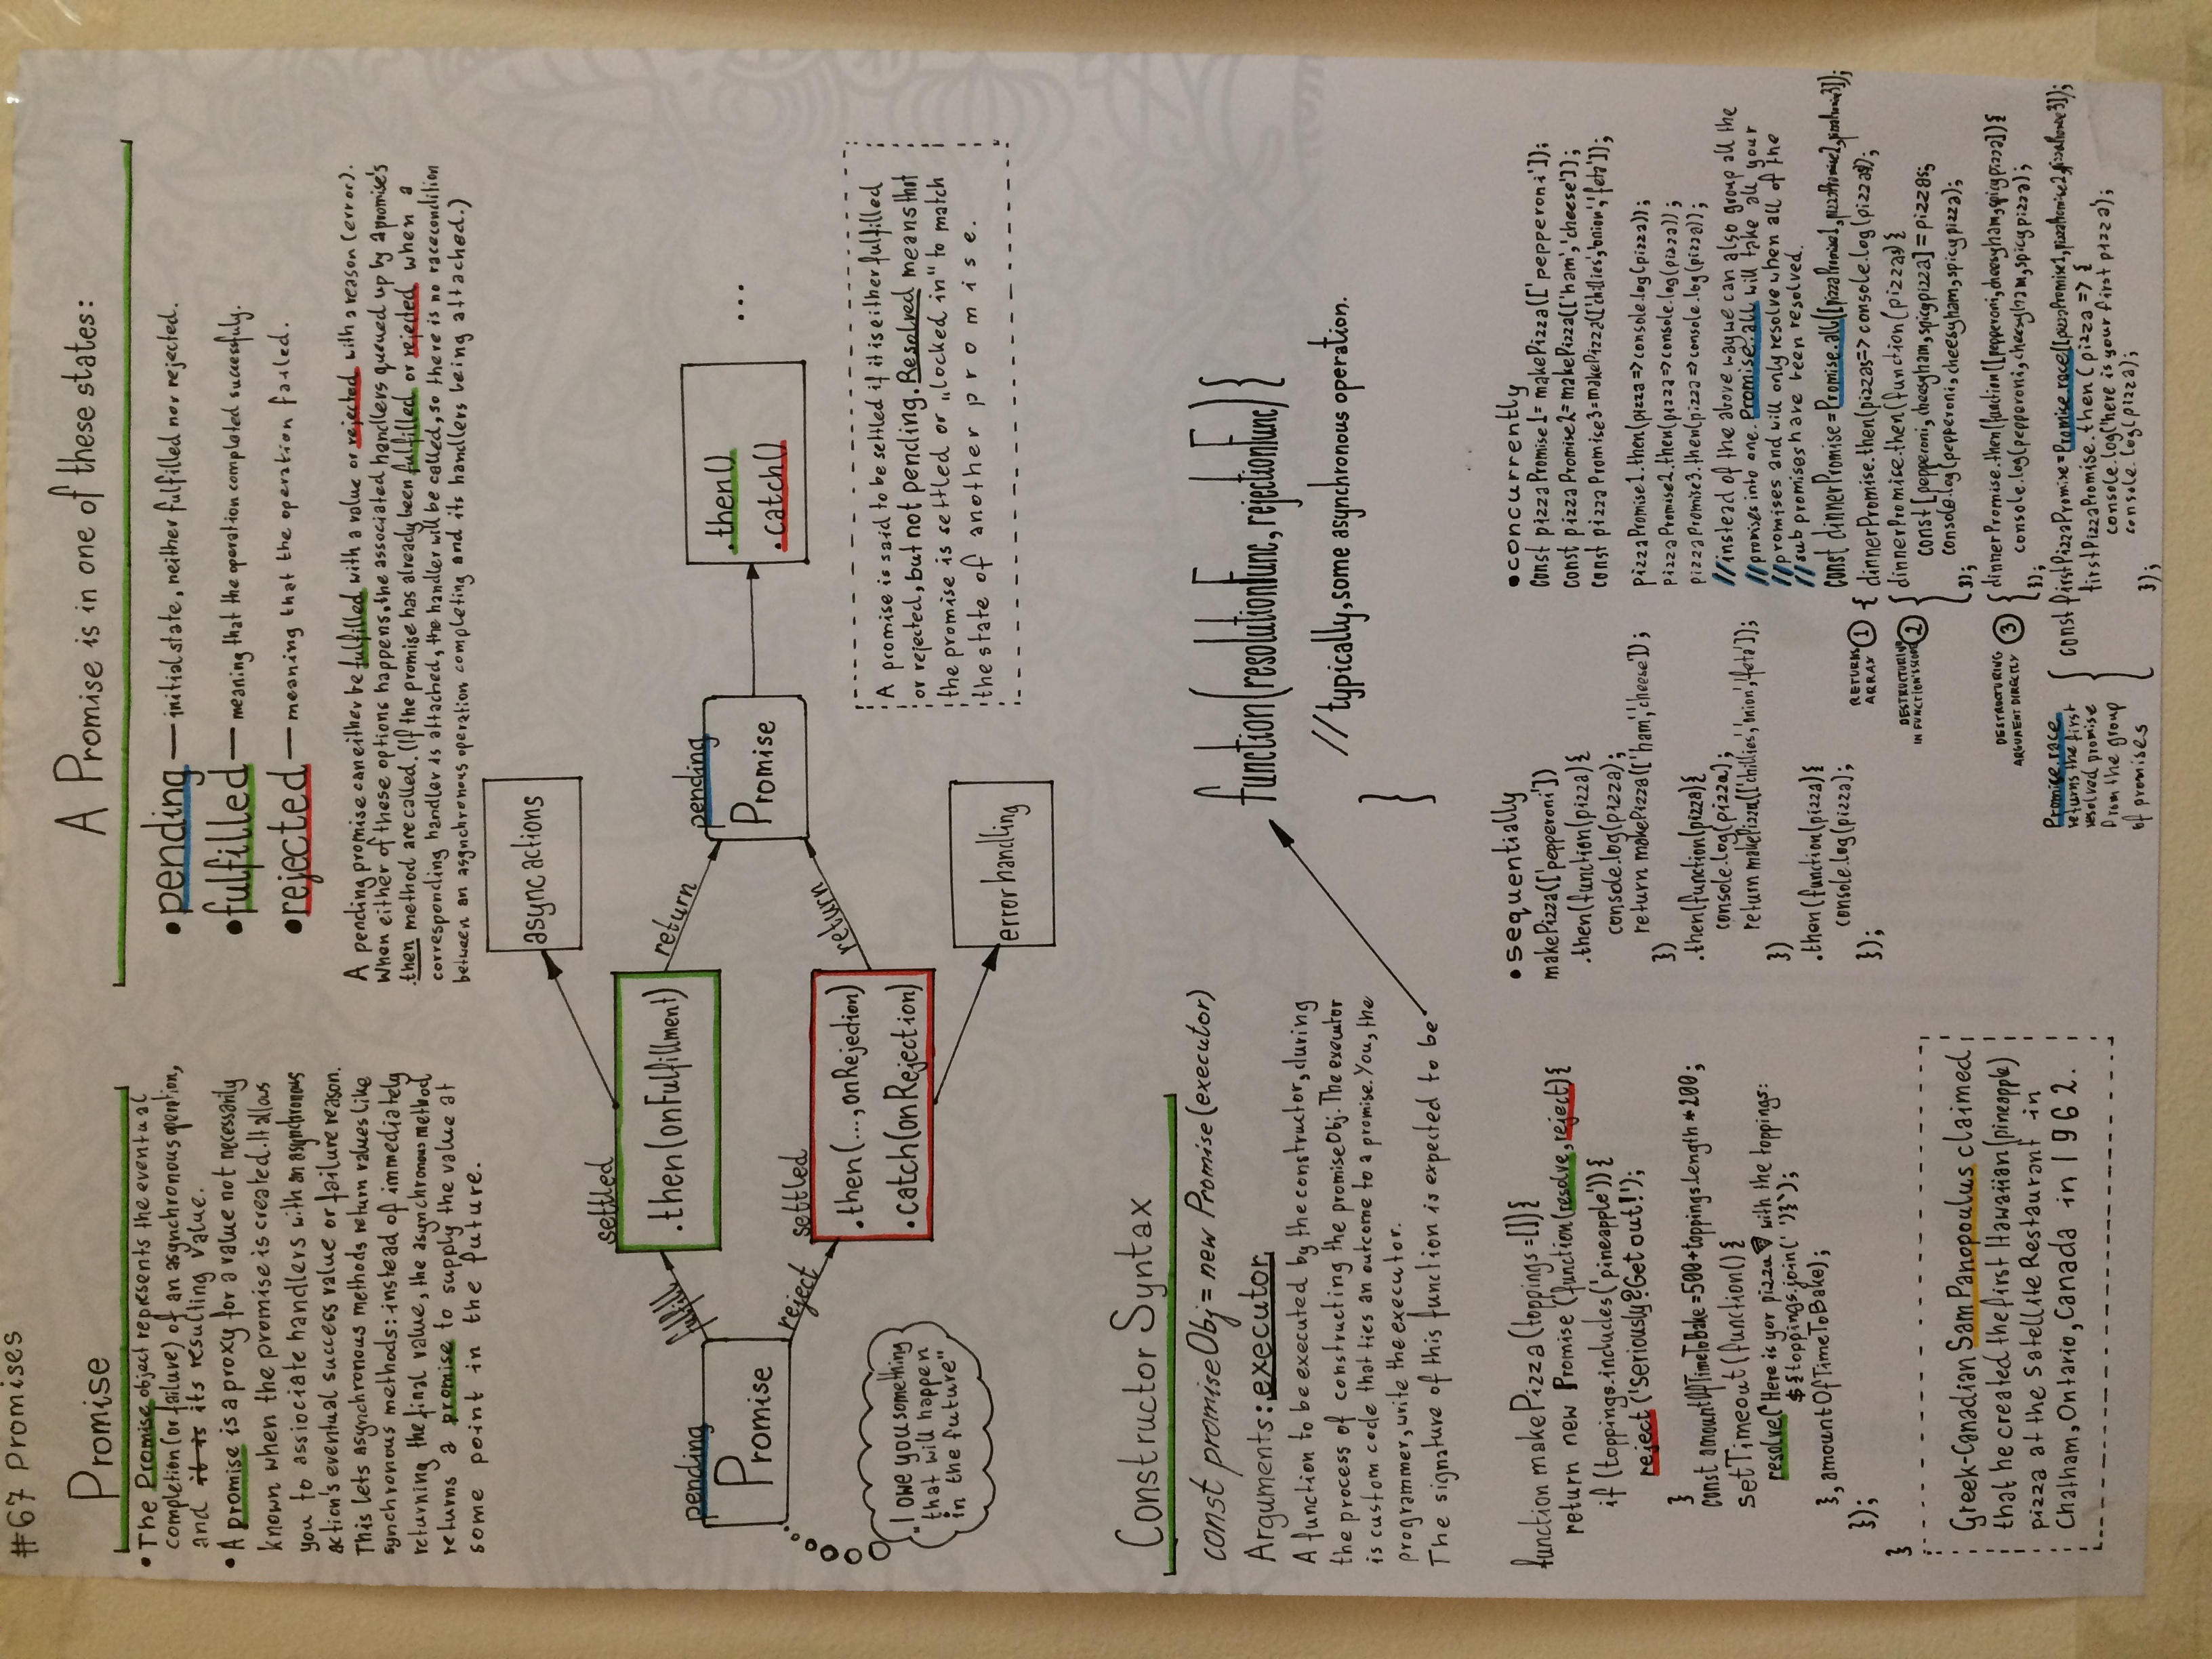 #67 Promises
Promise
• The Promise object represents the eventual
completion (or failure) of an asynchronous operation,
and it is its resulting value.
• A promise is a proxy for a value not necessarily
known when the promise is created. It allows
you to assiociate handlers with an asynchronous
action's eventual success value or failure reason.
This lets asynchronous methods return values like
synchronous methods: instead of immediately
returning the final value, the asynchronous method
returns a promise to supply the value at
some point in the future.
A Promise is in one of these states:
• pending — initial state, neither fulfilled nor rejected.
• fulfilled — meaning that the operation completed successfuly.
• rejected — meaning that the operation failed.
A pending promise can either be fulfilled with a value or rejected with a reason (error).
When either of these options happens, the associated handlers queued up by a promise's
then method are called. (If the promise has already been fulfilled or rejected when a
corresponding handler is attached, the handler will be called, so there is no racecondition
between an asynchronous operation completing and its handlers being attached.)
async actions
settled
.then(onFulfillment)
fulfill
return
pending
Promise
pending
Promise
.then()
.catch()
...
reject
settled
.then(..., onRejection)
.catch(onRejection)
return
"I owe you something
that will happen
in the future"
error handling
A promise is said to be settled if it is either fulfilled
or rejected, but not pending. Resolved means that
the promise is settled or „locked in" to match
the state of another promise.
Constructor Syntax
const promiseObj = new Promise(executor)
Arguments: executor
A function to be executed by the constructor, during
the process of constructing the promiseObj. The executor
is custom code that ties an outcome to a promise. You, the
programmer, write the executor.
The signature of this function is expected to be
function(resolutionFunc, rejectionFunc) {
// typically, some asynchronous operation.
}
function makePizza(toppings = []) {
return new Promise ('function(resolve, reject) {
if (toppings.includes('pineapple')) {
reject ('Seriously? Get out!');
}
const amountOfTimeToBake = 500 + toppings.length * 200;
setTimeout(function() {
resolve(`Here is yor pizza 🍕 with the toppings:
${toppings.join(' ')}`);
}, amountOfTimeToBake);
});
}
Greek-Canadian Sam Panopoulus claimed
that he created the first Hawaiian (pineapple)
pizza at the Satellite Restaurant in
Chatham, Ontario, Canada in 1962.
• sequentially
makePizza(['pepperoni'])
.then(function(pizza) {
console.log(pizza);
return makePizza(['ham', 'cheese']);
})
.then(function(pizza) {
console.log(pizza);
return makePizza(['chillies', 'onion', 'feta']);
})
.then(function(pizza) {
console.log(pizza);
});
• concurrently
const pizzaPromise1 = makePizza(['pepperoni']);
const pizzaPromise2 = makePizza(['ham', 'cheese']);
const pizzaPromise3 = makePizza(['chillies', 'onion', 'feta']);
pizzaPromise1.then(pizza => console.log(pizza));
pizzaPromise2.then(pizza => console.log(pizza));
pizzaPromise3.then(pizza => console.log(pizza));
// instead of the above way we can also group all the
// promises into one. Promise.all will take all your
// promises and will only resolve when all of the
// sub promises have been resolved.
const dinnerPromise = Promise.all([pizzaPromise1, pizzaPromise2, pizzaPromise3]);
RETURNS
ARRAY
1
{ dinnerPromise.then(pizzas => console.log(pizzas));
DESTRUCTURING
IN FUNCTION'S SCOPE
2
{ dinnerPromise.then(function(pizzas) {
const [pepperoni, cheesyham, spicypizza] = pizzas;
console.log(pepperoni, cheesyham, spicypizza);
});
DESTRUCTURING
ARGUMENT DIRECTLY
3
{ dinnerPromise.then(function([pepperoni, cheesyham, spicypizza]) {
console.log(pepperoni, cheesyham, spicypizza);
});
Promise.race
returns the first
resolved promise
from the group
of promises
{ const firstPizzaPromise = Promise.race([pizzaPromise1, pizzaPromise2, pizzaPromise3]);
firstPizzaPromise.then(pizza => {
console.log('here is your first pizza);
console.log(pizza);
});